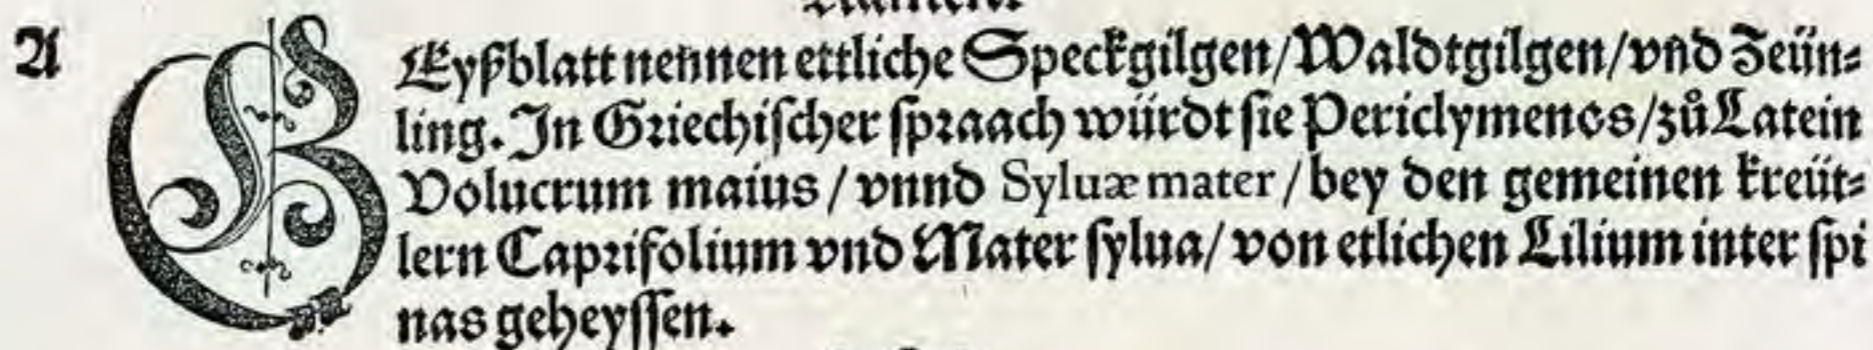 A
GEyßblatt nennen ettliche Speckgilgen/Waldtgilgen/vnd Zeün⸗
ling. In Griechischer spraach würdt sie Periclymenos/zů Latein
Volucrum maius / vnnd Syluæ mater / bey den gemeinen kreüt⸗
lern Caprifolium vnd Mater sylua/ von etlichen Lilium inter spi
nas geheyssen.